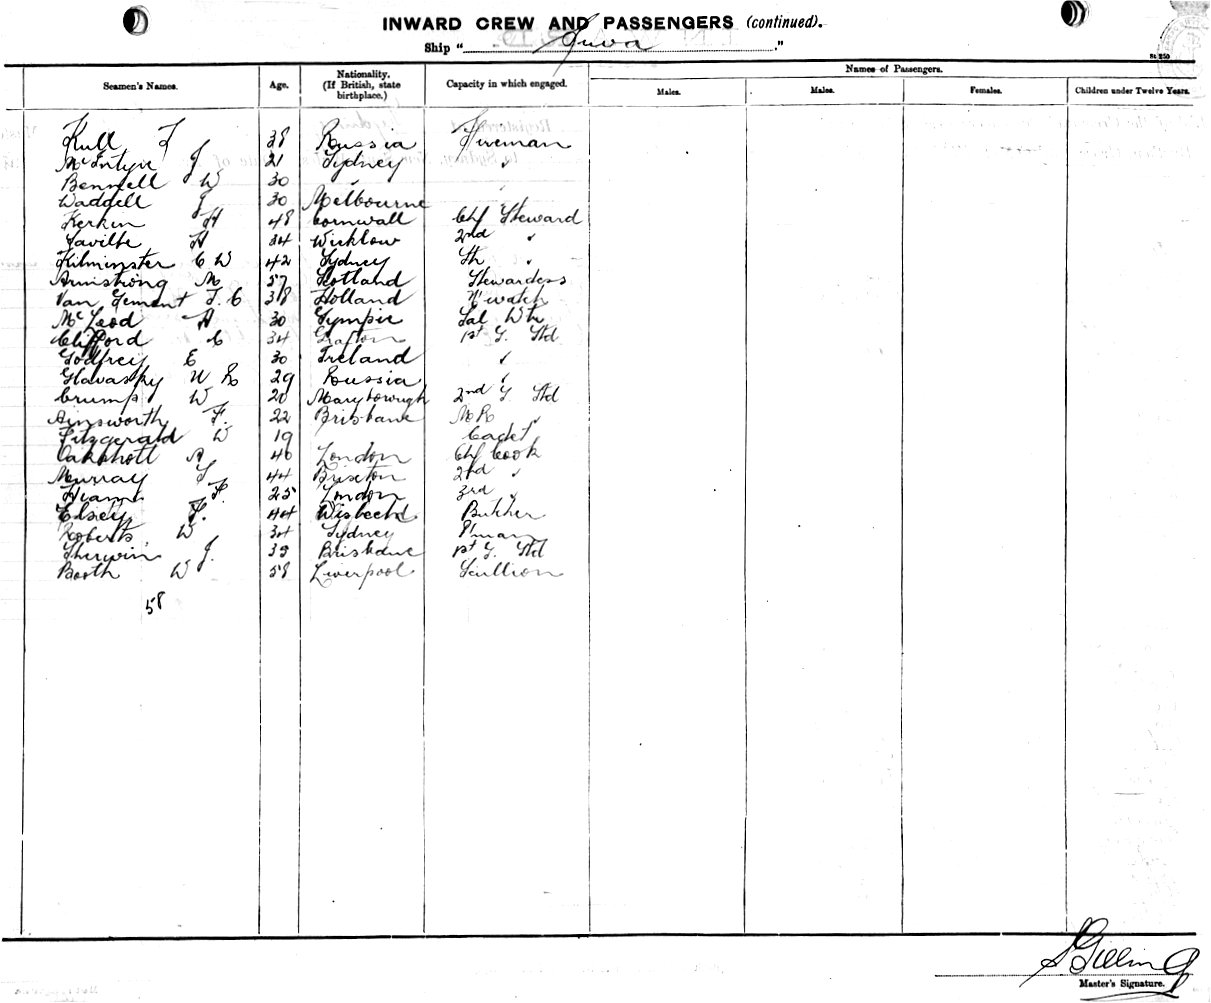 INWARD CREW AND PASSENGERS (continued).
Ship "Suva."
St 250
Seamen's Names. Age. Nationality. (If British, state birthplace.) Capacity in which engaged. Names of Passengers.
Males. Males. Females. Children under Twelve Years.
Kull 38 Russia Fireman
McIntyre J 21 Sydney "
Bennell W 30 " "
Waddell J 30 Melbourne "
Kerkin H 48 Cornwall Chf Steward
Saville H 34 Wicklow 2nd "
Kilminster C W 42 Sydney "
Armstrong M 57 Scotland Stewardess
Van Gement J. C 38 Holland N' watch
McLeod A 30 Gympie Sal Wtr
Clifford C 34 Grafton 1st G. Std
Godfrey E 30 Ireland "
Glavasky W R 29 Russia "
Crump W 20 Maryborough 2nd G Std
Ainsworth F. 22 Brisbane M R "
Fitzgerald W 19 Cadet
Oakshott A 40 London Chf Cook
Murray 44 Brixton 2nd "
F. 25 London 3rd "
Elsey F. 44 Wisbech Butcher
Roberts W 34 Sydney P'man
Sherwin J. 35 Brisbane 1st G. Std
Booth W 58 Liverpool Scullion
58
Master's Signature.